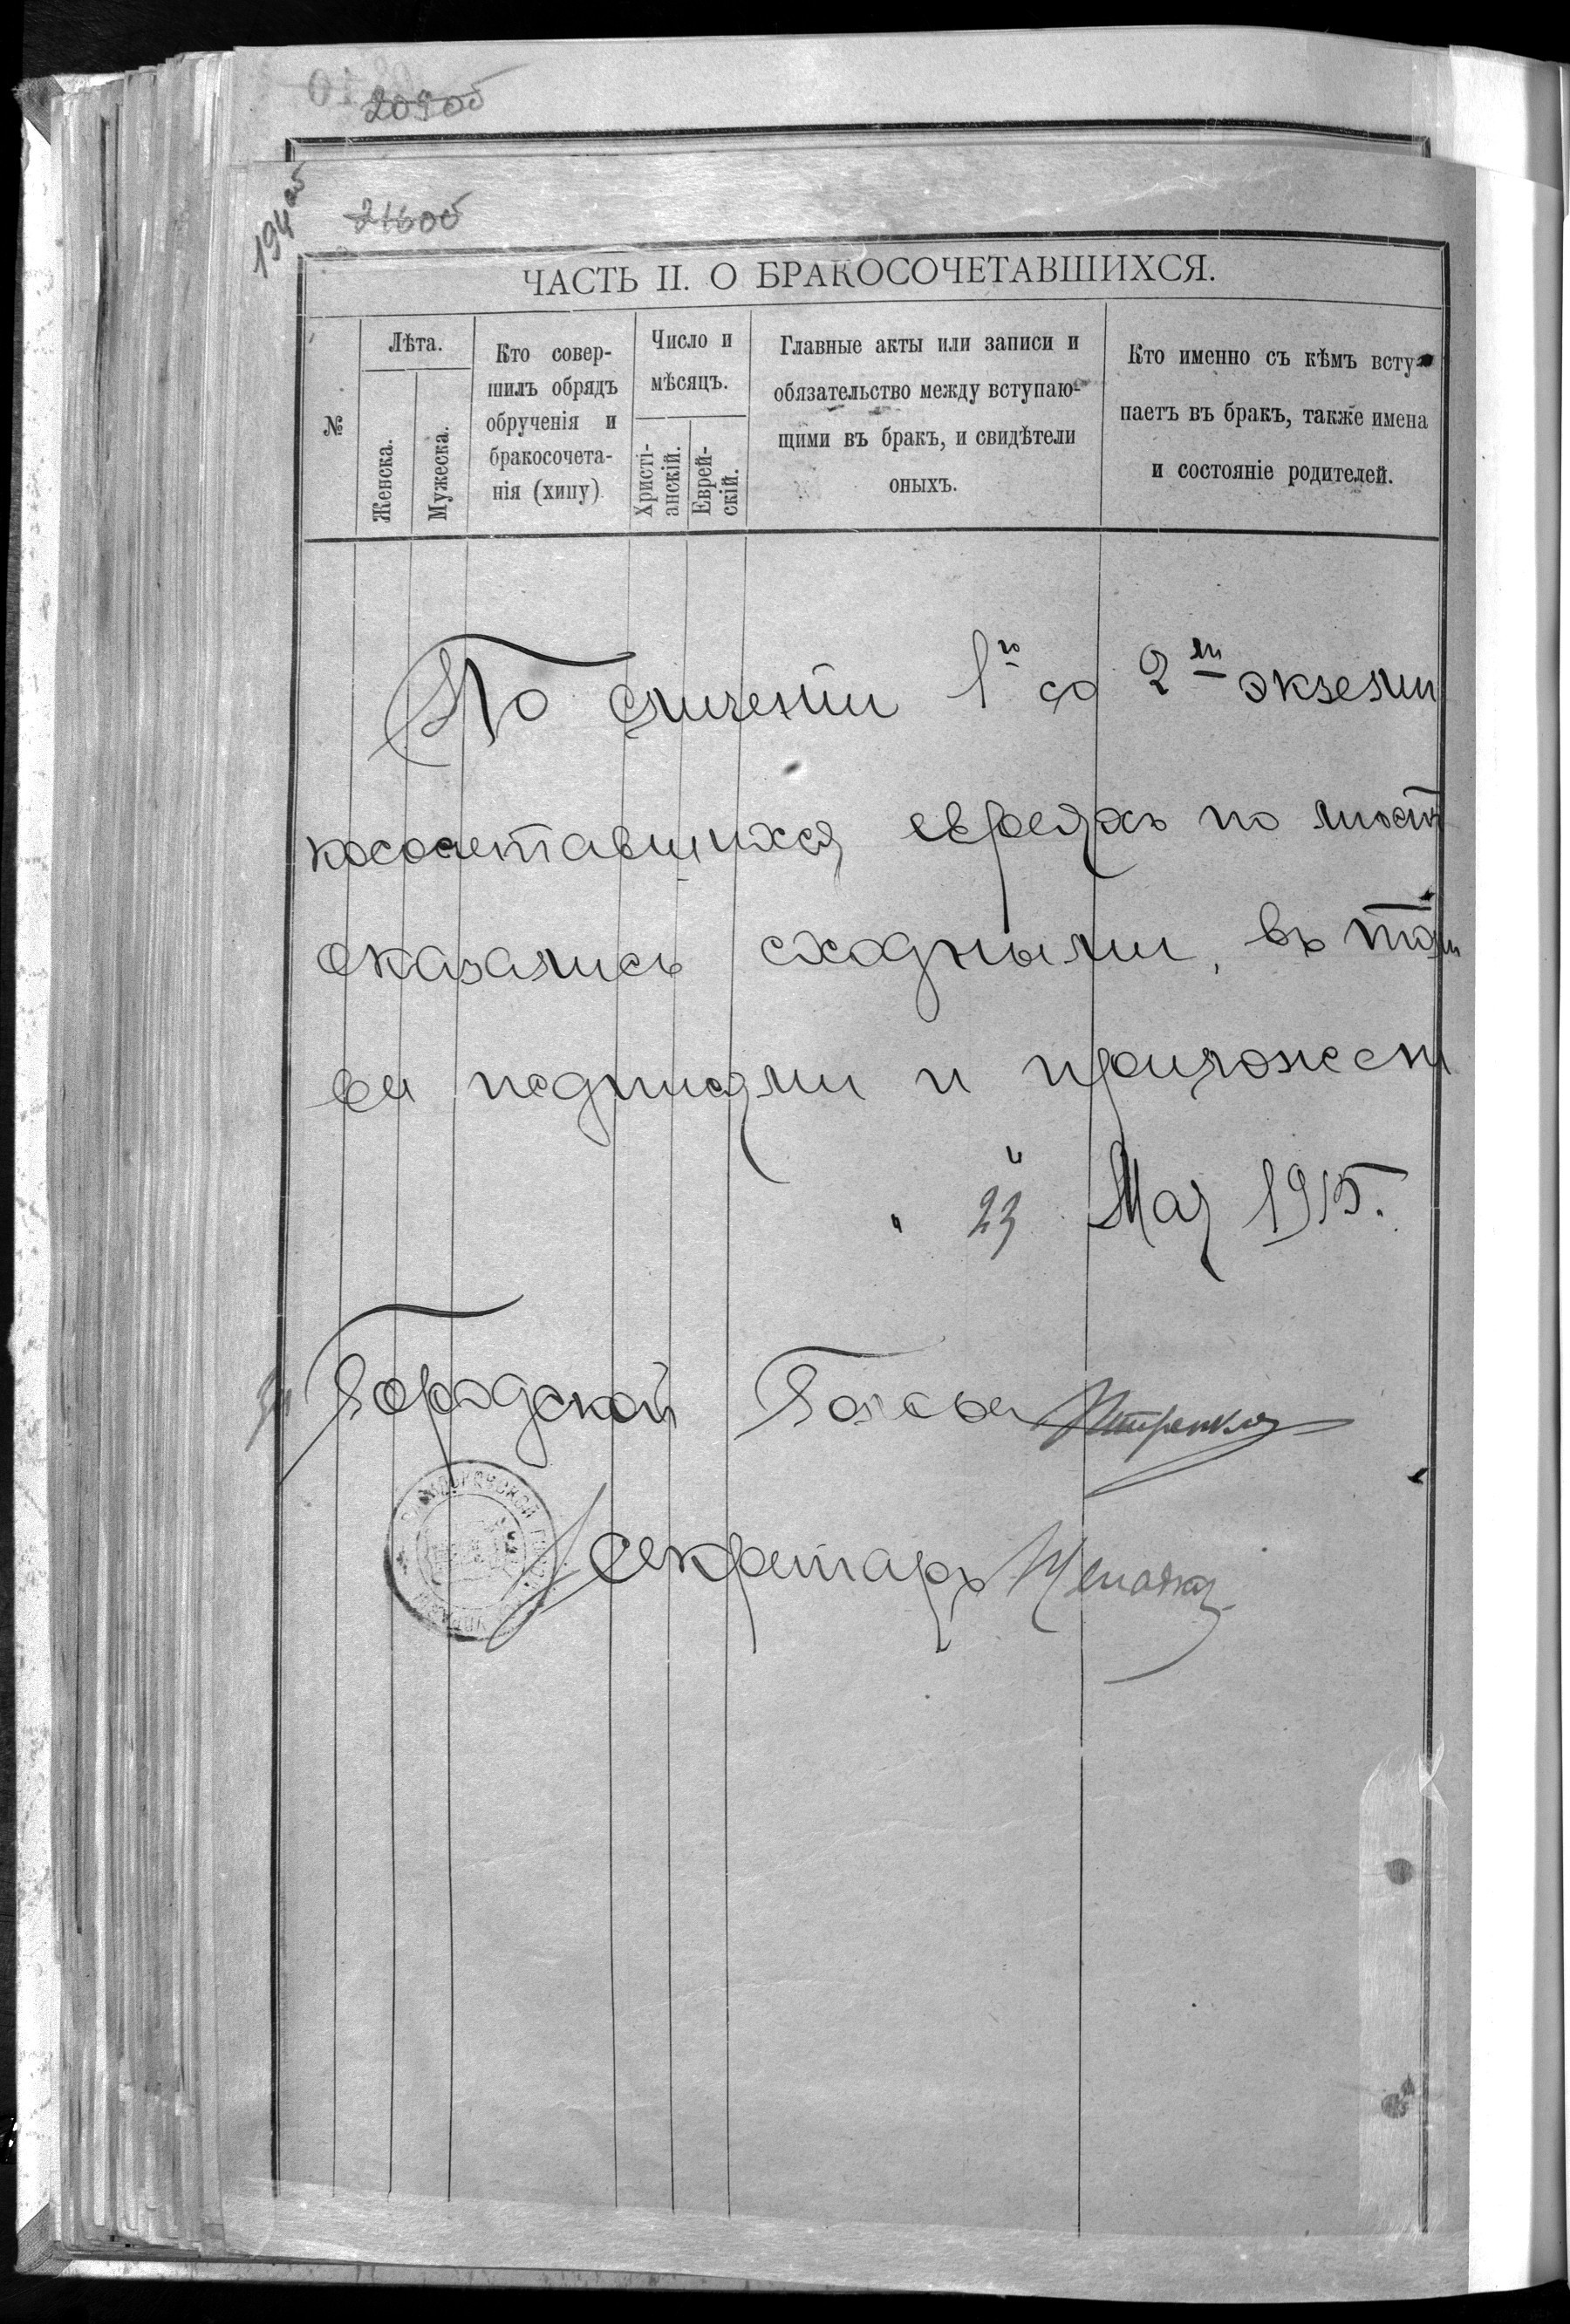 209об
194об
216об
ЧАСТЬ II. О БРАКОСОЧЕТАВШИХСЯ.
№
Лѣта.
Женска.
Мужеска.
Кто совер-
шилъ обрядъ
обрученія и
бракосочета-
нія (хипу)
Число и
мѣсяцъ.
Христі-
анскій.
Еврей-
скій.
Главные акты или записи и
обязательство между вступаю-
щими въ бракъ, и свидѣтели
оныхъ.
Кто именно съ кѣмъ всту-
паетъ въ бракъ, также имена
и состояніе родителей.
По сличеніи 1го со 2мъ экзем
косочетавшихся евреяхъ по
оказались сходными, въ томъ
ея подписями и приложені
"23" Мая 1915.
За Городской Голова
Секретарь